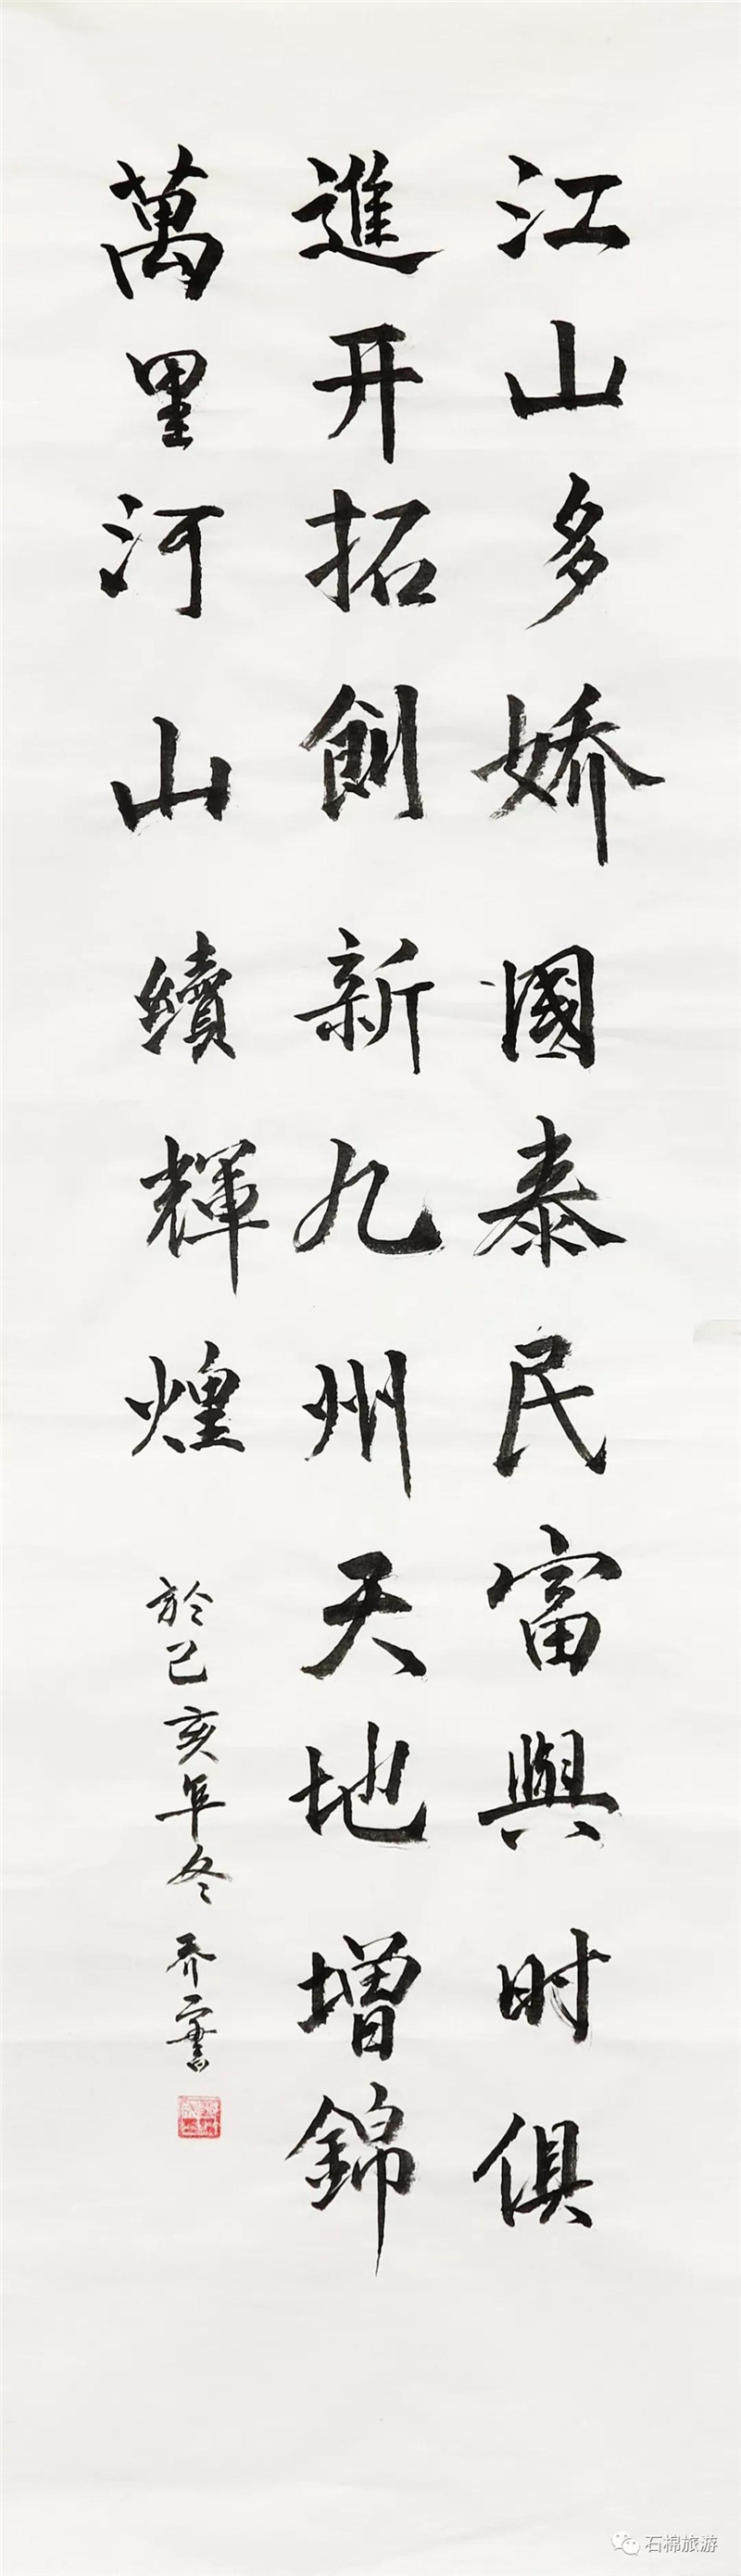 江山多娇國泰民富與时俱
進开拓創新九州天地增錦
萬里河山續輝煌
於己亥年冬乔書
石棉旅游